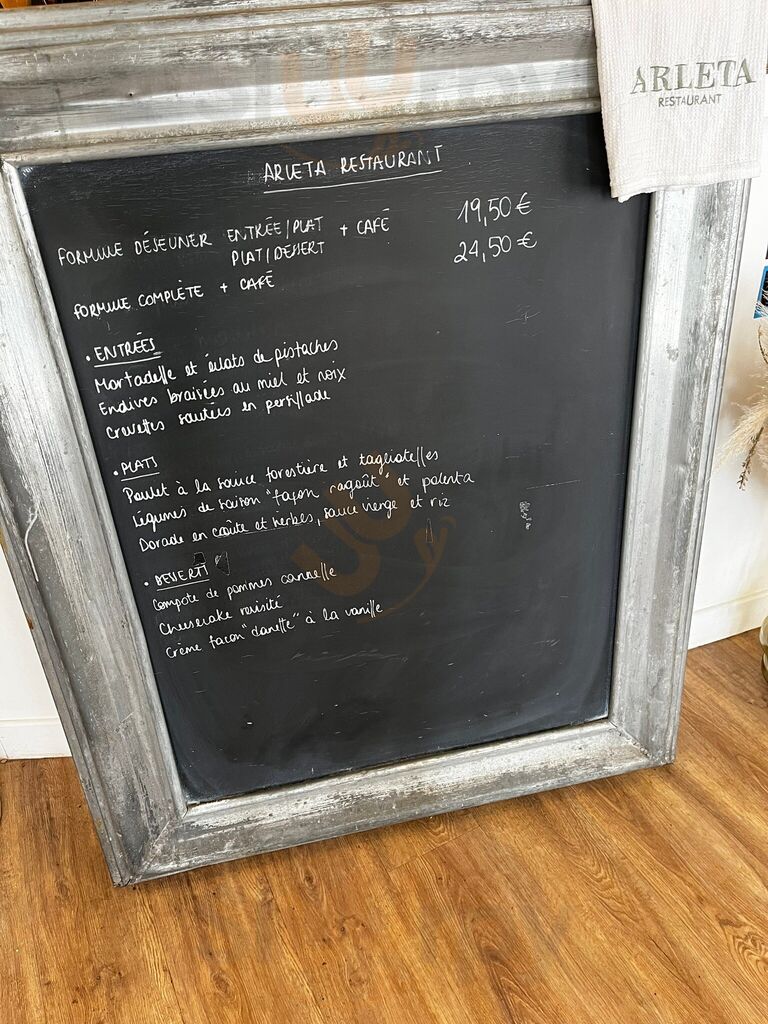 ARLETA
RESTAURANT
ARLETA RESTAURANT
FORMULE DÉJEUNER ENTRÉE/PLAT + CAFÉ 19,50 €
PLAT/DESSERT 24,50 €
FORMULE COMPLÈTE + CAFÉ
• ENTRÉES
Mortadelle et éclats de pistaches
Endives braisées au miel et noix
Crevettes sautées en persillade
• PLATS
Poulet à la sauce forestière et tagliatelles
Légumes de saison "façon ragoût" et polenta
Dorade en croûte et herbes, sauce vierge et riz
• DESSERTS
Compote de pommes cannelle
Cheesecake revisité
Crème façon "danette" à la vanille